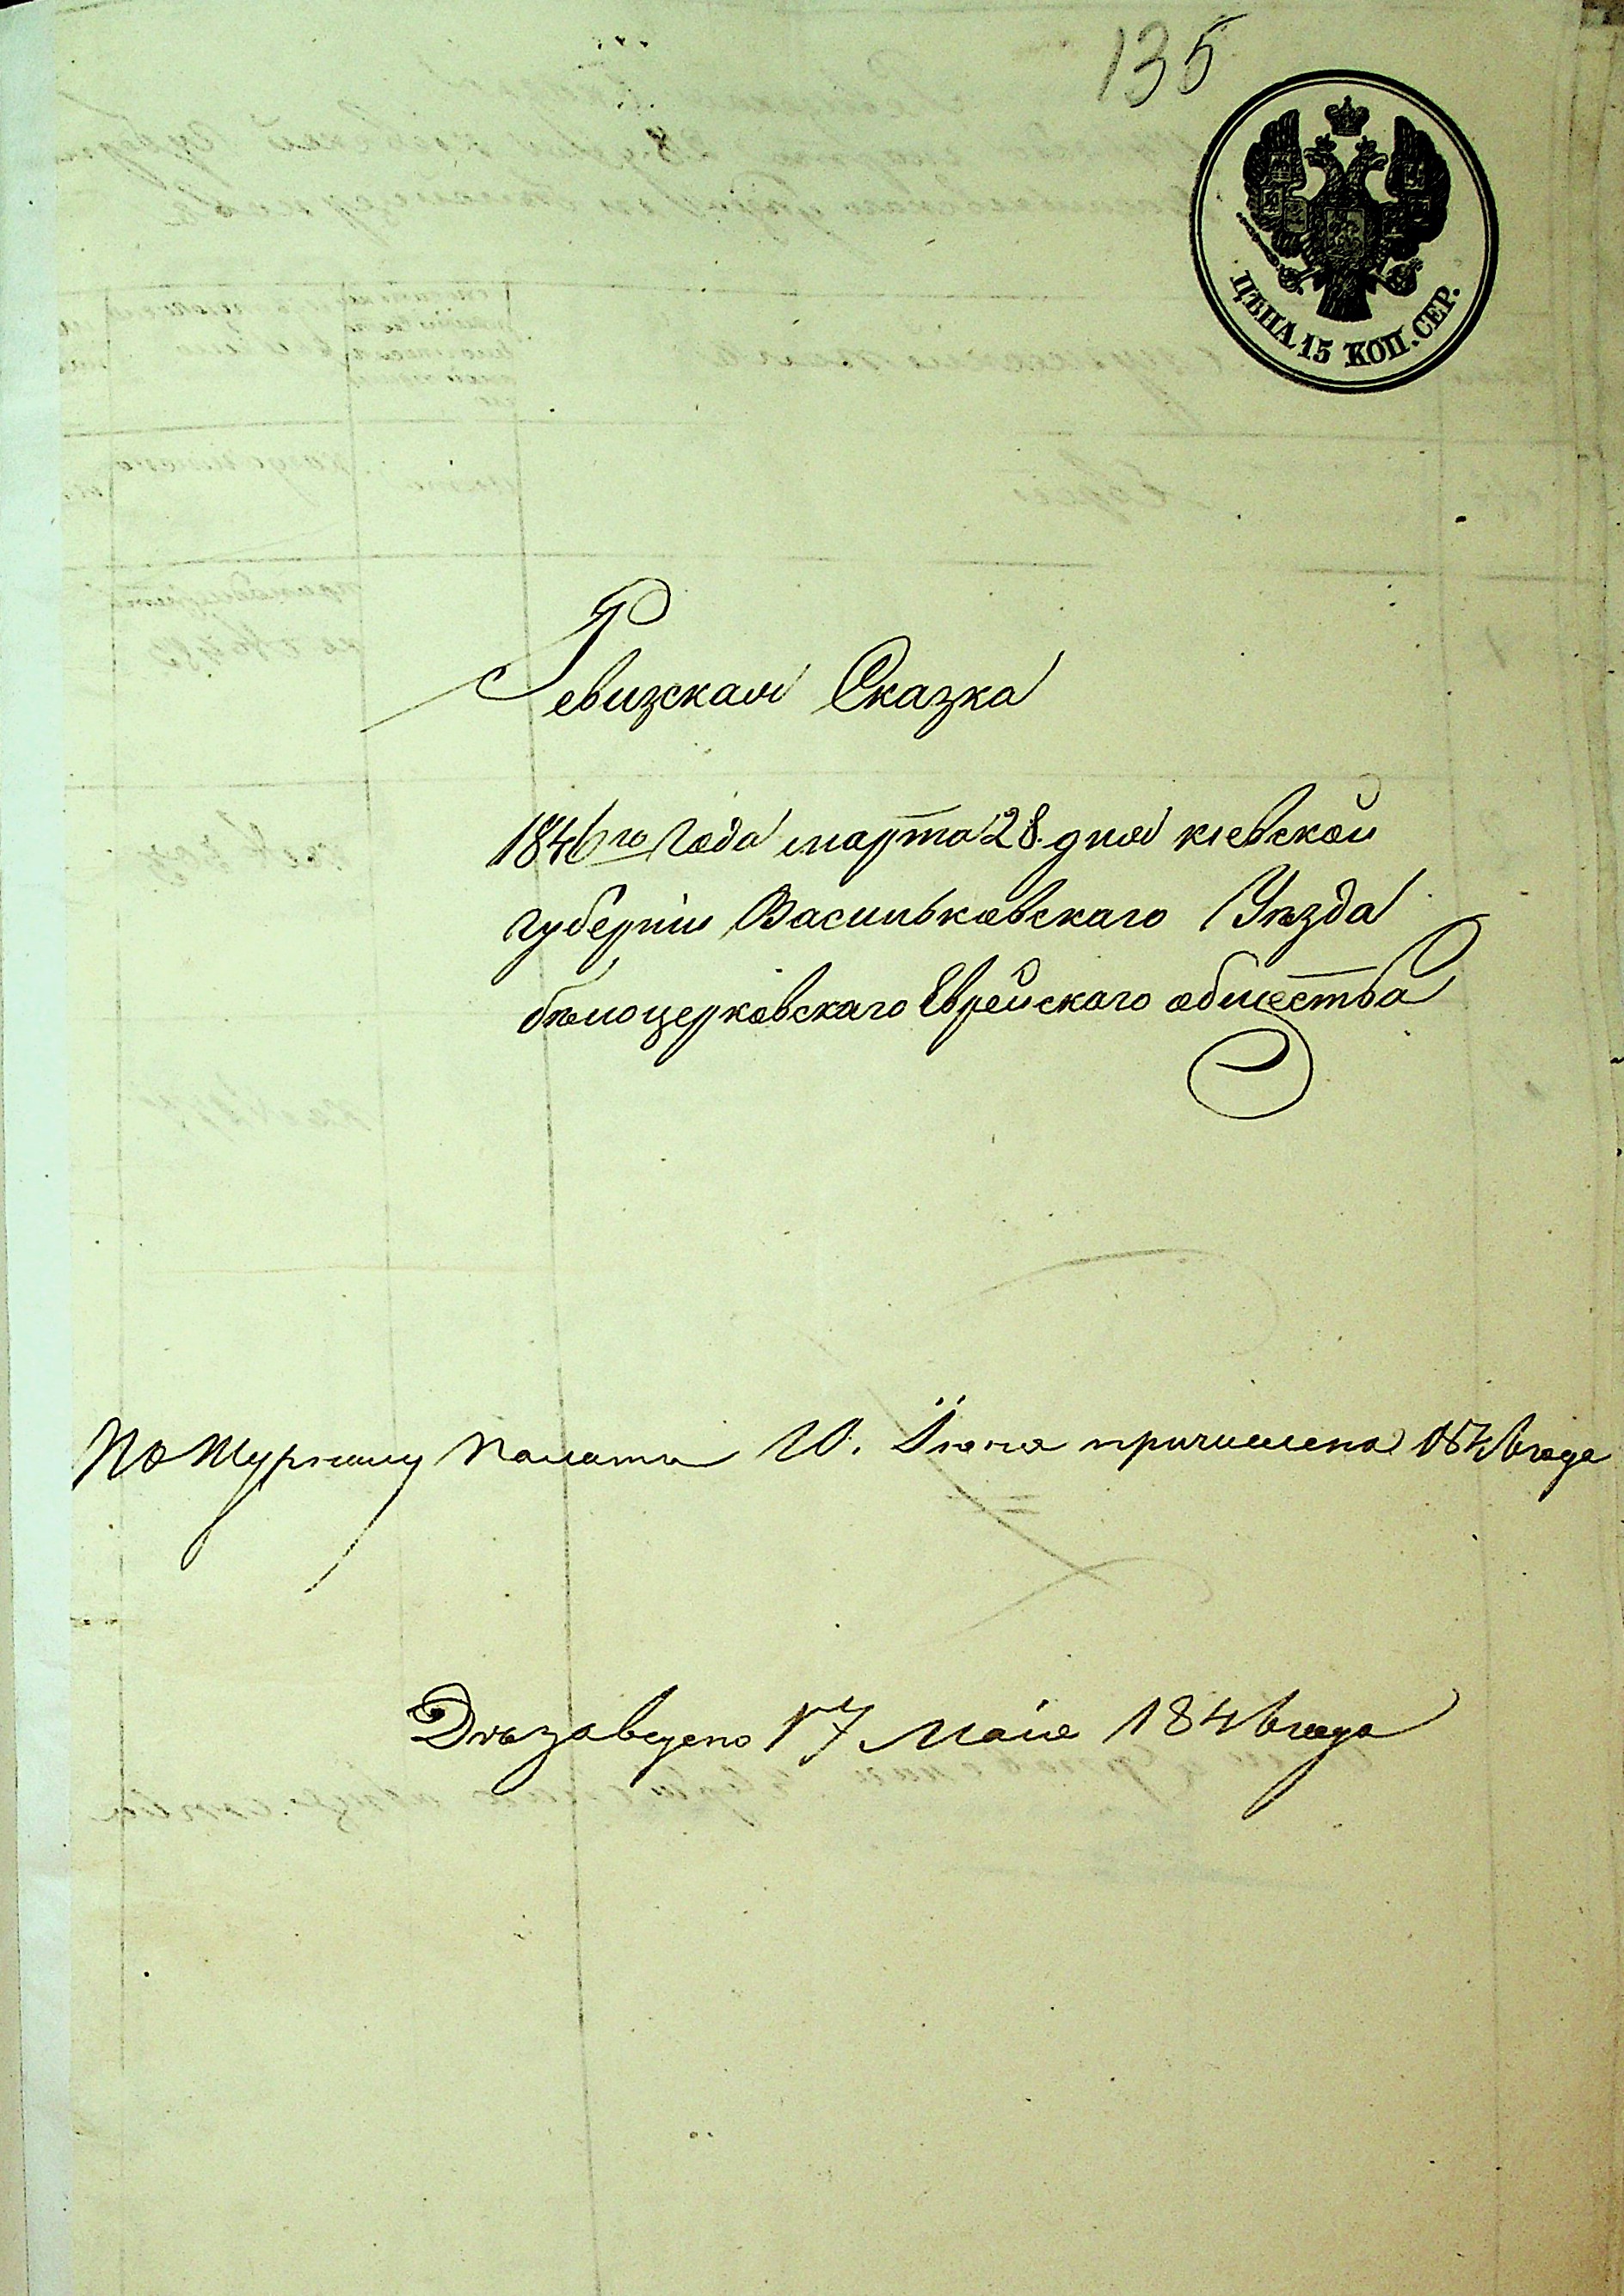 135
ЦѢНА 15 КОП. СЕР.
Ревизская Сказка
1846го Года марта 28. дня кіевской
губерніи Васильковскаго Уѣзда
бѣлоцерковскаго Еврейскаго общества
По Журналу Палаты 10. Іюня причислена 1846 года
заведено 17 Маія 1846 года